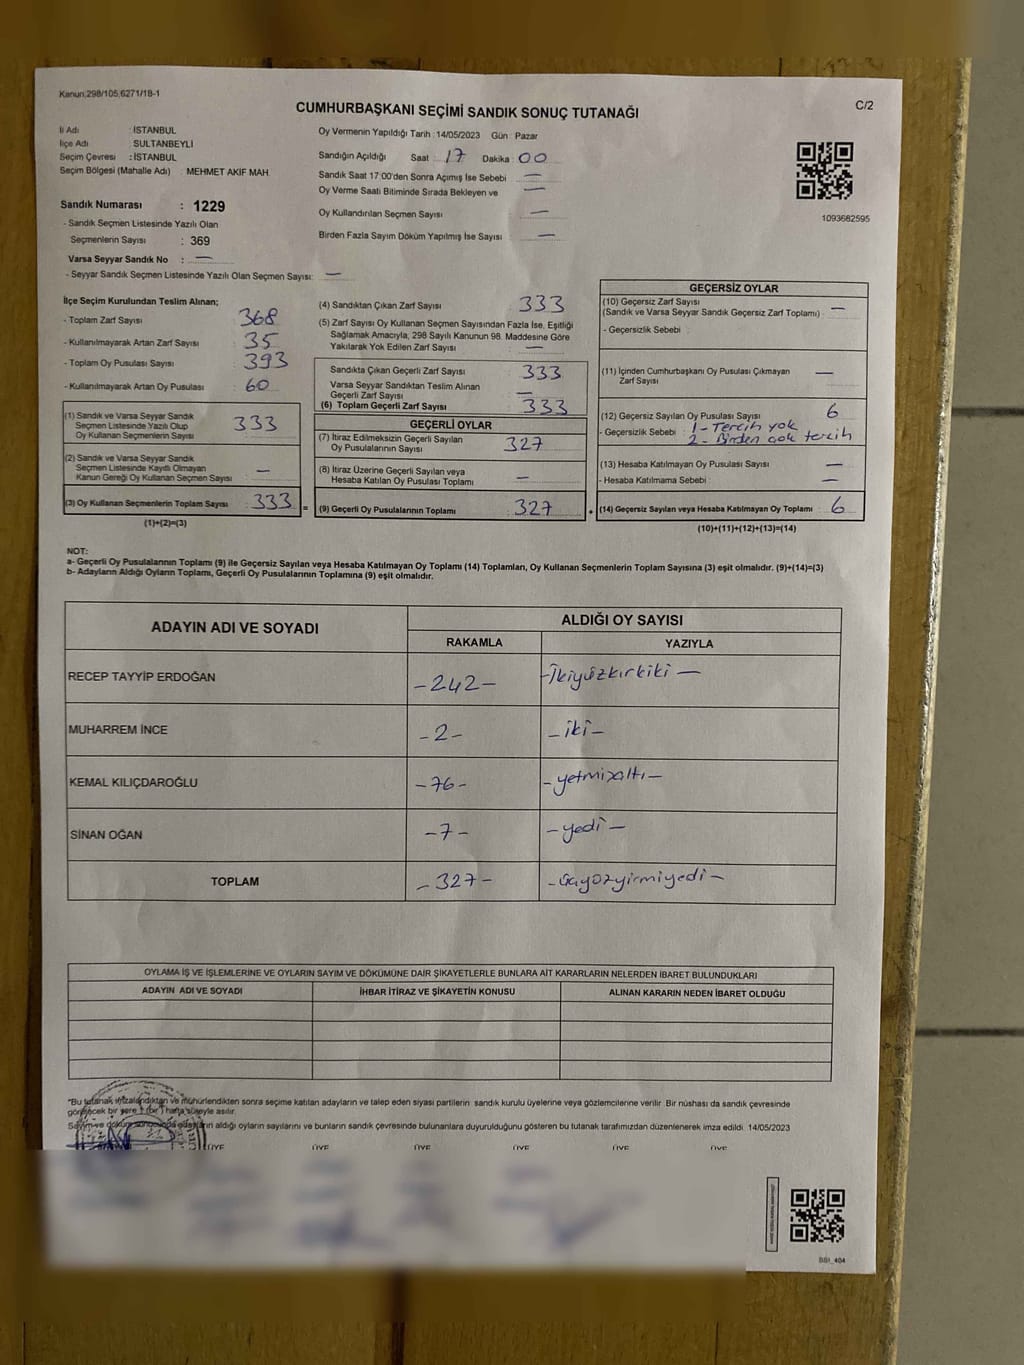 Kanun:298/105,6271/18-1
CUMHURBAŞKANI SEÇİMİ SANDIK SONUÇ TUTANAĞI
C/2
İl Adı : İSTANBUL
İlçe Adı : SULTANBEYLİ
Seçim Çevresi : İSTANBUL
Seçim Bölgesi (Mahalle Adı) MEHMET AKİF MAH.
Sandık Numarası : 1229
- Sandık Seçmen Listesinde Yazılı Olan
Seçmenlerin Sayısı : 369
Varsa Seyyar Sandık No : —
- Seyyar Sandık Seçmen Listesinde Yazılı Olan Seçmen Sayısı: —
Oy Vermenin Yapıldığı Tarih : 14/05/2023 Gün : Pazar
Sandığın Açıldığı Saat : 17 Dakika : 00
Sandık Saat 17:00'den Sonra Açımış İse Sebebi —
Oy Verme Saati Bitiminde Sırada Bekleyen ve —
Oy Kullandırılan Seçmen Sayısı —
Birden Fazla Sayım Döküm Yapılmış İse Sayısı —
1093682595
İlçe Seçim Kurulundan Teslim Alınan;
- Toplam Zarf Sayısı : 368
- Kullanılmayarak Artan Zarf Sayısı : 35
- Toplam Oy Pusulası Sayısı : 393
- Kullanılmayarak Artan Oy Pusulası : 60
(1) Sandık ve Varsa Seyyar Sandık
Seçmen Listesinde Yazılı Olup
Oy Kullanan Seçmenlerin Sayısı 333
(2) Sandık ve Varsa Seyyar Sandık
Seçmen Listesinde Kayıtlı Olmayan
Kanun Gereği Oy Kullanan Seçmen Sayısı —
(3) Oy Kullanan Seçmenlerin Toplam Sayısı 333
(1)+(2)=(3)
(4) Sandıktan Çıkan Zarf Sayısı 333
(5) Zarf Sayısı Oy Kullanan Seçmen Sayısından Fazla İse, Eşitliği
Sağlamak Amacıyla, 298 Sayılı Kanunun 98. Maddesine Göre
Yakılarak Yok Edilen Zarf Sayısı —
Sandıkta Çıkan Geçerli Zarf Sayısı 333
Varsa Seyyar Sandıktan Teslim Alınan
Geçerli Zarf Sayısı —
(6) Toplam Geçerli Zarf Sayısı 333
GEÇERLİ OYLAR
(7) İtiraz Edilmeksizin Geçerli Sayılan
Oy Pusulasının Sayısı 327
(8) İtiraz Üzerine Geçerli Sayılan veya
Hesaba Katılan Oy Pusulası Toplamı —
(9) Geçerli Oy Pusulalarının Toplamı 327
GEÇERSİZ OYLAR
(10) Geçersiz Zarf Sayısı
(Sandık ve Varsa Seyyar Sandık Geçersiz Zarf Toplamı) : —
- Geçersizlik Sebebi :
(11) İçinden Cumhurbaşkanı Oy Pusulası Çıkmayan —
Zarf Sayısı
(12) Geçersiz Sayılan Oy Pusulası Sayısı 6
- Geçersizlik Sebebi : 1- Tercih yok
2- Birden çok tercih
(13) Hesaba Katılmayan Oy Pusulası Sayısı —
- Hesaba Katılmama Sebebi : —
(14) Geçersiz Sayılan veya Hesaba Katılmayan Oy Toplamı 6
(10)+(11)+(12)+(13)=(14)
NOT:
a- Geçerli Oy Pusulalarının Toplamı (9) ile Geçersiz Sayılan veya Hesaba Katılmayan Oy Toplamı (14) Toplamları, Oy Kullanan Seçmenlerin Toplam Sayısına (3) eşit olmalıdır. (9)+(14)=(3)
b- Adayların Aldığı Oyların Toplamı, Geçerli Oy Pusulalarının Toplamına (9) eşit olmalıdır.
ADAYIN ADI VE SOYADI
ALDIĞI OY SAYISI
RAKAMLA YAZIYLA
RECEP TAYYİP ERDOĞAN -242- -İkiyüzkırkiki-
MUHARREM İNCE -2- -iki-
KEMAL KILIÇDAROĞLU -76- -yetmişaltı-
SİNAN OĞAN -7- -yedi-
TOPLAM -327- -üçyüzyirmiyedi-
OYLAMA İŞ VE İŞLEMLERİNE VE OYLARIN SAYIM VE DÖKÜMÜNE DAİR ŞİKAYETLERLE BUNLARA AİT KARARLARIN NELERDEN İBARET BULUNDUKLARI
ADAYIN ADI VE SOYADI İHBAR İTİRAZ VE ŞİKAYETİN KONUSU ALINAN KARARIN NEDEN İBARET OLDUĞU
"Bu tutanak imzalandıktan ve mühürlendikten sonra seçime katılan adayların ve talep eden siyasi partilerin sandık kurulu üyelerine veya gözlemcilerine verilir. Bir nüshası da sandık çevresinde
görülecek bir yere 1 (bir) hafta süreyle asılır.
Sayım ve döküm sonucunda adayların aldığı oyların sayılarını ve bunların sandık çevresinde bulunanlara duyurulduğunu gösteren bu tutanak tarafımızdan düzenlenerek imza edildi. 14/05/2023
ÜYE ÜYE ÜYE ÜYE ÜYE ÜYE